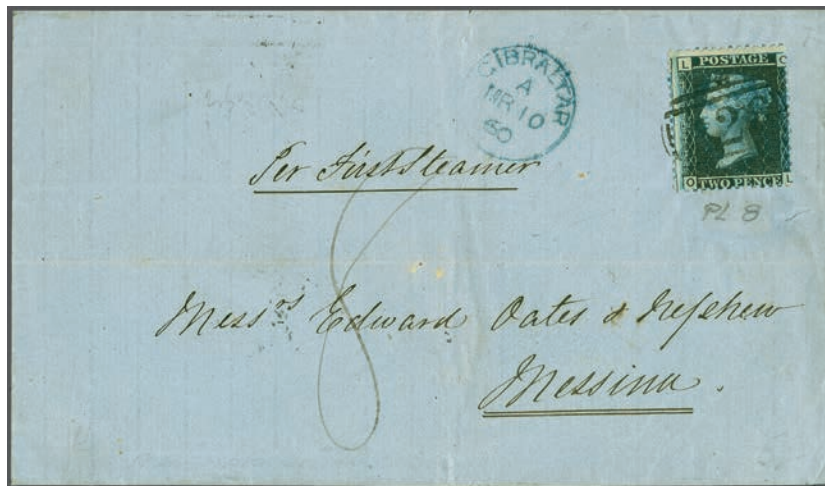 GIBRALTAR
A
MR 10
60
L POSTAGE Q
Q TWO PENCE L
PL 8
Per First Steamer
8
Messrs Edward Oates & Nephew
Messina.